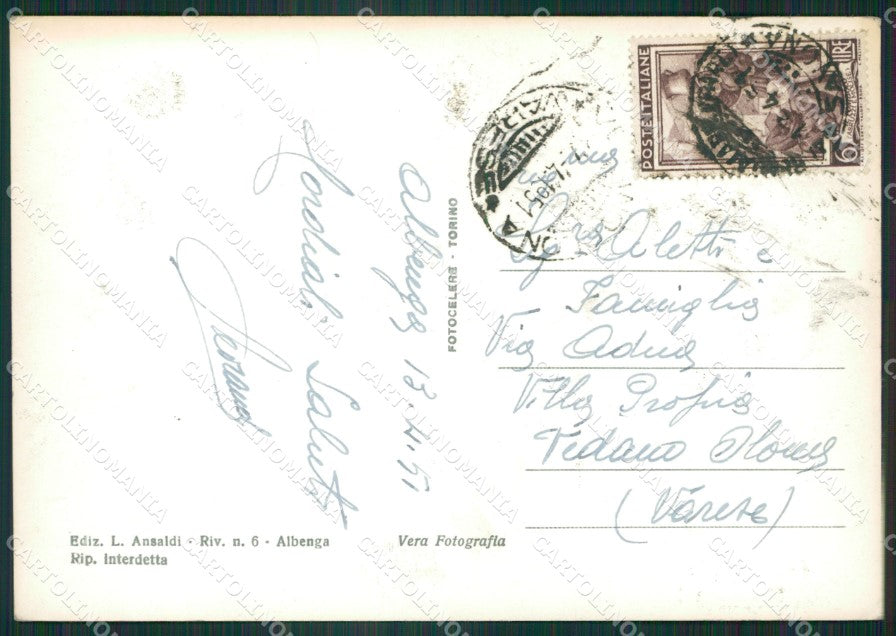 Albenga 13.4.51
Cordiali Saluti
Ediz. L. Ansaldi - Riv. n. 6 - Albenga
Rip. Interdetta
Vera Fotografia
FOTOCELERE - TORINO
POSTE ITALIANE
LIRE
Aletti e
Famiglia
Via Adua
Villa
Vedano Olona
(Varese)
CARTOLINOMANIA